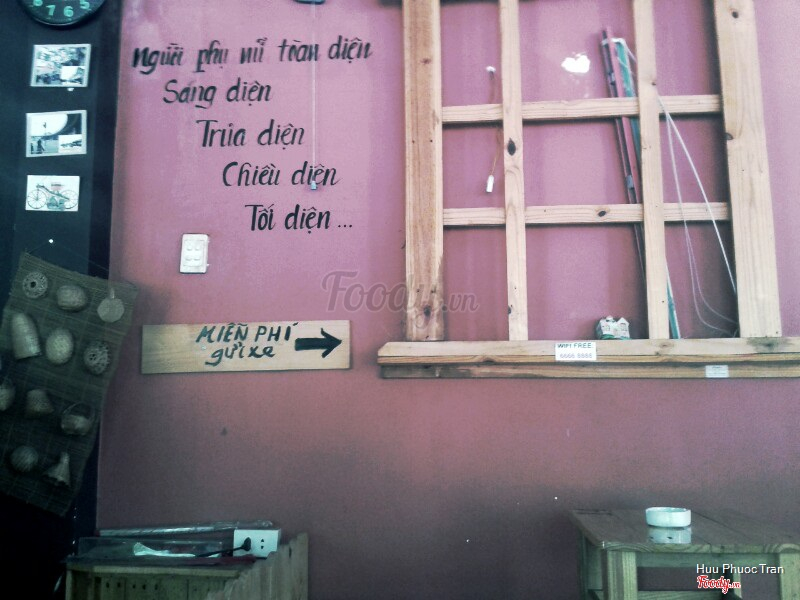 Người phụ nữ toàn diện
Sáng diện
Trưa diện
Chiều diện
Tối diện...
Foody.vn
MIỄN PHÍ
gửi xe
WIFI FREE
6666 6666
Huu Phuoc Tran
Foody.vn